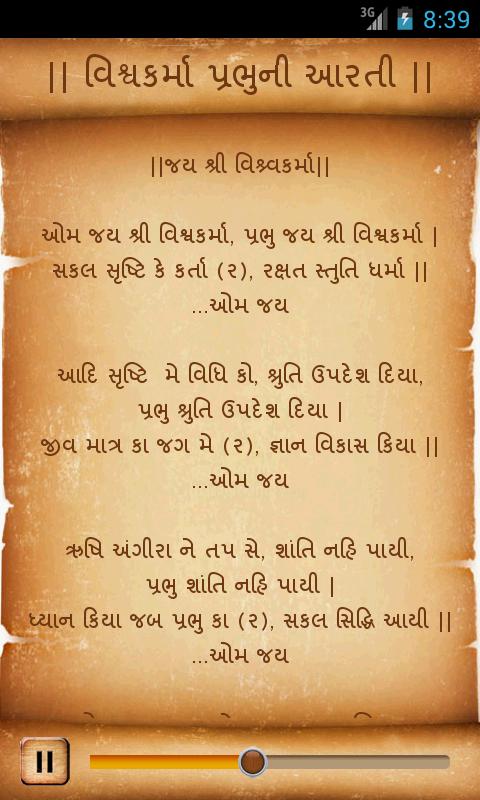 3G 8:39
|| વિશ્વકર્મા પ્રભુની આરતી ||
||જય શ્રી વિશ્ર્વકર્મા||
ઓમ જય શ્રી વિશ્વકર્મા, પ્રભુ જય શ્રી વિશ્વકર્મા |
સકલ સૃષ્ટિ કે કર્તા (૨), રક્ષત સ્તુતિ ધર્મા ||
...ઓમ જય
આદિ સૃષ્ટિ મે વિધિ કો, શ્રુતિ ઉપદેશ દિયા,
પ્રભુ શ્રુતિ ઉપદેશ દિયા |
જીવ માત્ર કા જગ મે (૨), જ્ઞાન વિકાસ કિયા ||
...ઓમ જય
ઋષિ અંગીરા ને તપ સે, શાંતિ નહિ પાયી,
પ્રભુ શાંતિ નહિ પાયી |
ધ્યાન કિયા જબ પ્રભુ કા (૨), સકલ સિદ્ધિ આયી ||
...ઓમ જય